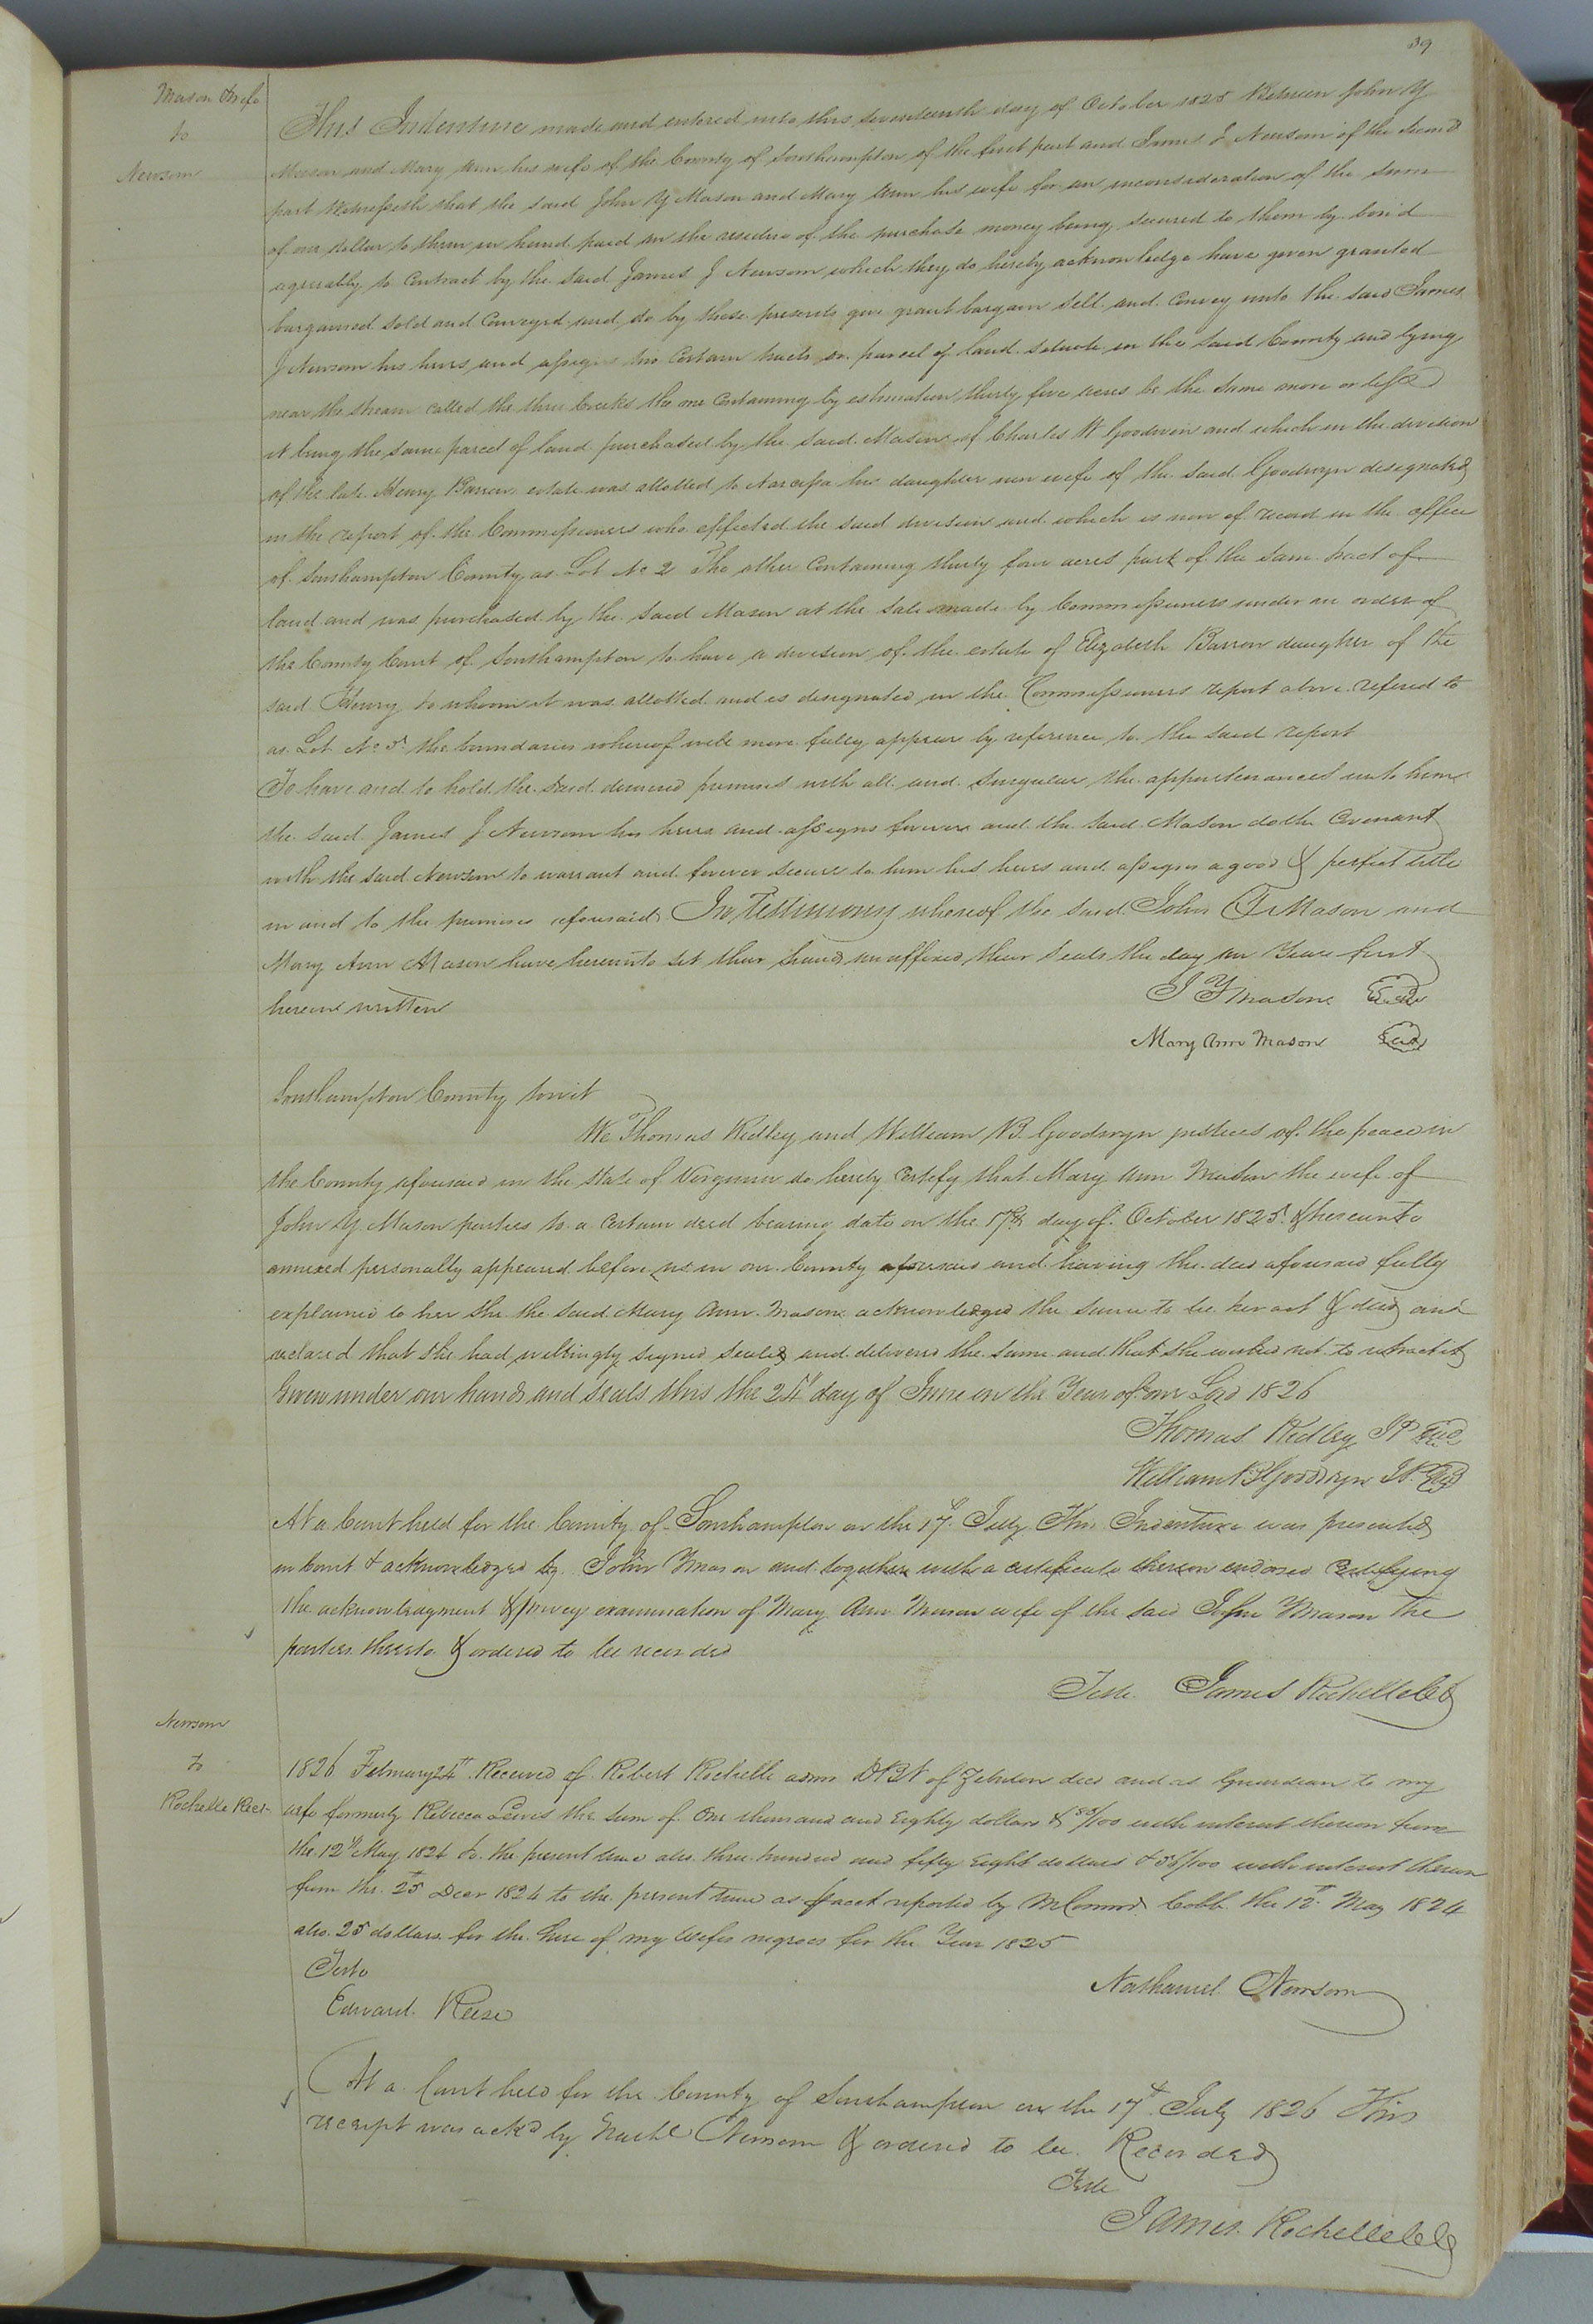 39
Mason & wife
to
Newsom
This Indenture made and entered into this seventeenth day of October 1825 Between John Y
Mason and Mary Ann his wife of the County of Southampton of the first part and James J Newsom of the second
part Witnesseth that the said John Y Mason and Mary Ann his wife for an inconsideration of the sum
of one dollar to them in hand paid an the residue of the purchase money being secured to them by bond
agreeably to Contract by the said James J Newsom which they do hereby acknowledge have given granted
bargained sold and Conveyed and do by these presents give grant bargain sell and Convey unto the said James
J Newsom his heirs and assigns two Certain tracts or parcel of land situate in the said County and lying
near the stream called the three Creeks the one Containing by estimation thirty five acres be the same more or less
it being the same parcel of land purchased by the said Mason of Charles W Goodwin and which in the division
of the late Henry Barrow estate was allotted to Narcissa his daughter now wife of the said Goodwyn designated
in the report of the Commissioners who effected the said division and which is now of record in the office
of Southampton County as Lot No 2 The other Containing thirty four acres part of the same tract of
land and was purchased by the said Mason at the sale made by Commissioners under an order of
the County Court of Southampton to have a division of the estate of Elizabeth Barrow daughter of the
said Henry to whom it was allotted and is designated in the Commissioners report above refered to
as Lot No 5 the boundaries whereof will more fully appear by reference to the said report
To have and to hold the said demised premises with all and singular the appurtenances unto him
the said James J Newsom his heirs and assigns forever and the said Mason doth Covenant
with the said Newsom to warrant and forever secure to him his heirs and assigns a good & perfect title
in and to the premises aforesaid In Testimony whereof the said John Y Mason and
Mary Ann Mason have hereunto set their hands an affixed their seals the day an Year first
herein written
J Y Mason Seal
Mary Ann Mason Seal
Southampton County towit
We Thomas Ridley and William B. Goodwyn justices of the peace in
the County aforesaid in the State of Virginia do hereby Certify that Mary Ann Mason the wife of
John Y. Mason parties to a Certain deed bearing date on the 17th day of October 1825 & hereunto
annexed personally appeared before us in our County aforesaid and having the deed aforesaid fully
explained to her she the said Mary Ann Mason acknowledged the same to be her act & deed and
declared that she had willingly signed sealed and delivered the same and that she wished not to retract it
Given under our hands and seals this the 24th day of June in the Year of our Lord 1826
Thomas Ridley JP Seal
William B Goodwyn J.P. Seal
At a Court held for the County of Southampton on the 17th July This Indenture was presented
in Court & acknowledged by John Y Mason and together with a certificate thereon endorsed Certifying
the acknowledgment & privey examination of Mary Ann Mason wife of the said John Y Mason The
parties thereto & ordered to be recorded
Teste James Rochelle Clk
Newsom
to
Rochelle Rect
1826 February 24th Received of Robert Rochelle admr DBN of decd and as Guardian to my
wife formerly Rebecca Lewis the sum of One thousand and Eighty dollars & /100 with interest thereon from
the 12th May 1824 to the present time also three hundred and fifty Eight dollars & 56/100 with interest thereon
from the 25th Decr 1824 to the present time as pr acct reported by Cobb the 12th May 1824
also 25 dollars for the hire of my wifes negroes for the Year 1825
Teste
Nathaniel Newsom
Edward Reese
At a Court held for the County of Southampton on the 17th July 1826 This
receipt was ackd by Nathl Newsom & ordered to be Recorded
Teste
James Rochelle Clk